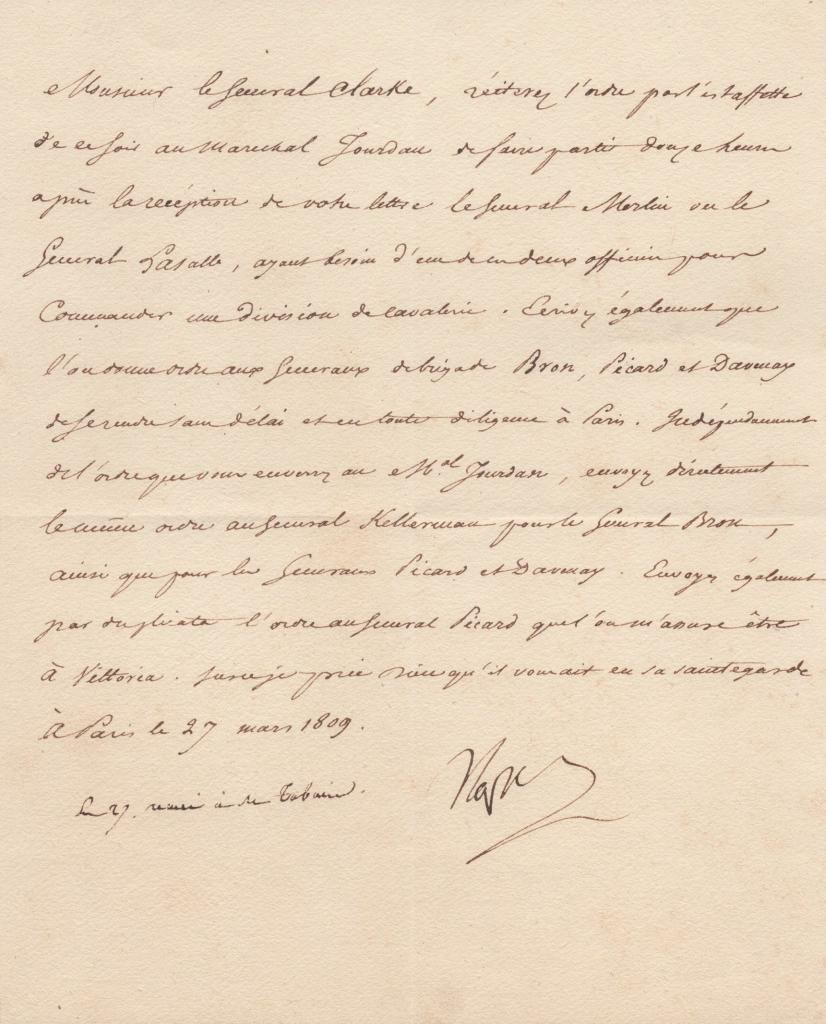 Monsieur le General Clarke, réiterez l'ordre par l'estaffette
de ce soir au Marechal Jourdan de faire partir douze heures
après la reception de votre lettre le General Merlin ou le
General Lasalle, ayant besoin d'un de ces deux officiers pour
Commander une division de cavalerie. Ecrivez également que
l'on donne ordre aux Generaux de brigade Bron, Picard et Davenay
de se rendre sans délai et en toute diligence à Paris. Indépendamment
de l'ordre que vous enverrez au M.al Jourdan, envoyez directement
le même ordre au General Kellerman pour le General Bron,
ainsi que pour les Generaux Picard et Davenay. Envoyez également
par duplicata l'ordre au General Picard que l'on m'assure être
à Vittoria. Sur ce je prie Dieu qu'il vous ait en sa sainte garde
à Paris le 27 mars 1809.
Nap
Le 27. à